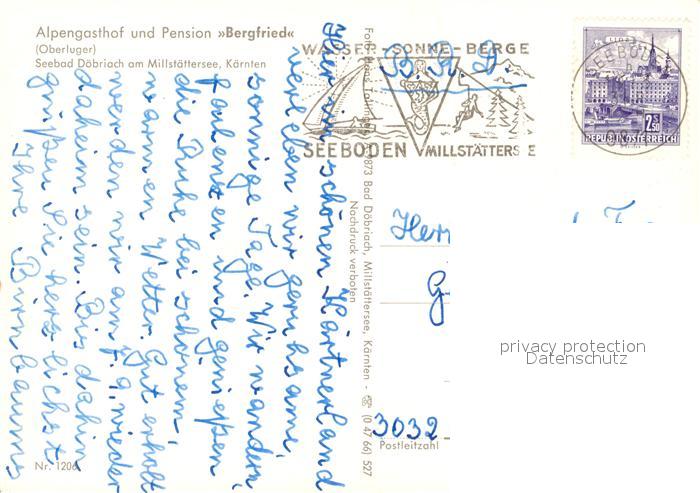 Alpengasthof und Pension »Bergfried«
(Oberluger)
Seebad Döbriach am Millstättersee, Kärnten
WASSER-SONNE-BERGE
SEEBODEN MILLSTÄTTERS E
SEEBODEN
2.50
REPUBLIK ÖSTERREICH
B.R.D
Hier im schönen Kärtnerland
verleben wir geruhsame,
sonnige Tage. Wir wandern,
faulenzen und genießen
die Ruhe bei schönem,
warmen Wetter. Gut erholt
werden wir am 7.9. wieder
daheim sein. Bis dahin
grüßen Sie herzlichst
Ihre Birnbaums
Nr. 1206
9873 Bad Döbriach, Millstättersee, Kärnten - ☏ (0 47 66) 527
Nachdruck verboten
Herr
T
G
3032
Postleitzahl
privacy protection
Datenschutz